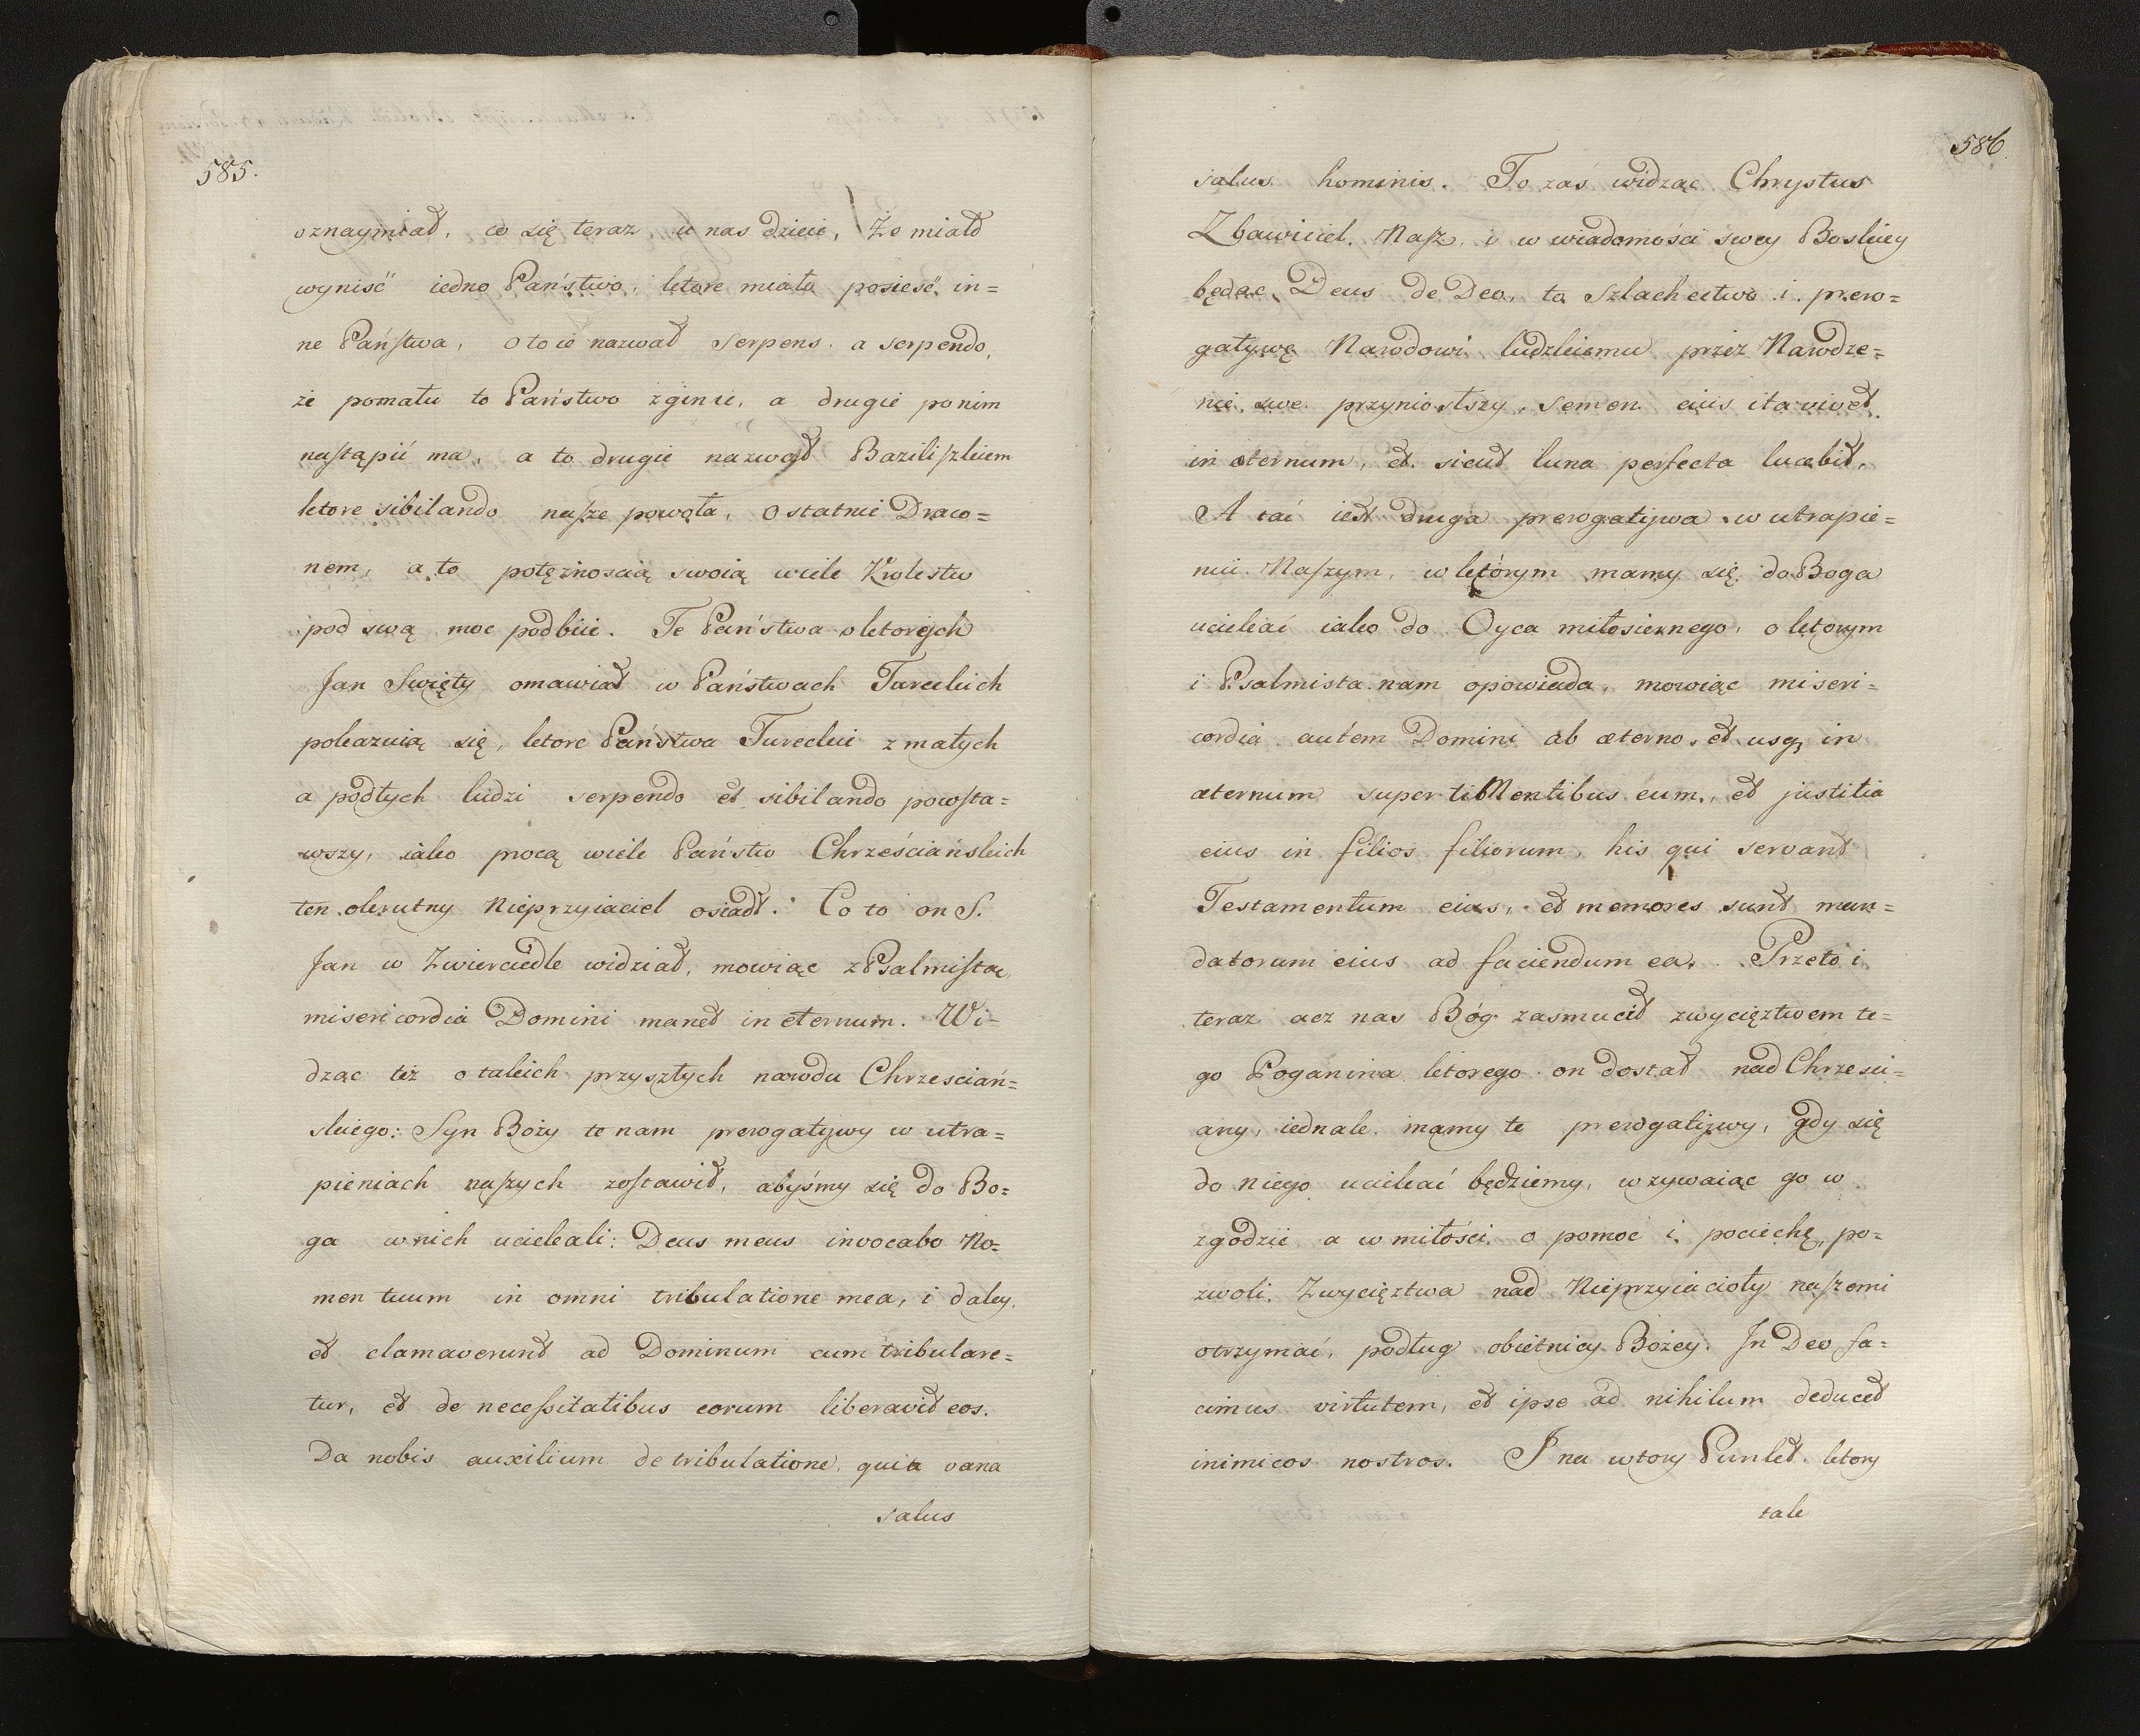 585.
oznaymiał, co się teraz u nas dzieie, Że miało
wyniść iedno Państwo, ktore miało posieść in=
ne Państwa, o to ie nazwał Serpens, a serpendo,
że pomału to Państwo zginie, a drugie po nim
nastąpić ma, a to drugie nazwał Baziliszkiem
ktore sibilando nasze powoła, Ostatnie Draco=
nem, a to potężnoscią swoią wiele Krolestw
pod swą moc podbiie. Te Państwa o ktorych
Jan Swięty omawiał w Państwach Tureckich
pokazuią się, ktore Państwa Tureckie z małych
a podłych ludzi serpendo et sibilando powsta=
wszy, iako mocą wiele Państw Chrześciańskich
ten okrutny Nieprzyiaciel osiadł. Co to on S.
Jan w Zwierciedle widział, mowiąc z Psalmistą
misericordia Domini manet in eternum. Wi=
dząc też o takich przyszłych narodu Chrzescian=
skiego: Syn Boży te nam prerogatywy w utra=
pieniach naszych zostawił, abyśmy się do Bo=
ga w nich uciekali: Deus meus invocabo No=
men tuum in omni tribulatione mea, i daley,
et clamaverunt ad Dominum cum tribulare=
tur, et de necessitatibus eorum liberavit eos.
Da nobis auxilium de tribulatione, quia vana
salus
586.
salus hominis. To zaś widząc Chrystus
Zbawiciel Nasz, i w wiadomości swey Boskiey
będąc Deus de Deo, ta Szlachectwo i prero=
gatywę Narodowi ludzkiemu przez Narodze=
nie swe przyniosłszy, Semen eius ita vivet
in æternum, et sicut luna perfecta lucebit,
A tać iest druga prerogatywa w utrapie=
niu Naszym, w którym mamy się do Boga
uciekać iako do Oyca miłosiernego, o którym
i Psalmista nam opowiada, mowiąc miseri=
cordia autem Domini ab æterno, et usq, in
æternum super tiMentibus eum, et justitia
eius in filios filiorum, his qui servant
Testamentum eius, et memores sunt man=
datorum eius ad faciendum ea. Przeto i
teraz acz nas Bóg zasmucił zwycięztwem te=
go Poganina ktorego on dostał nad Chrzesci=
any, iednak mamy te prerogatywy, gdy się
do niego uciekać będziemy, wzywaiąc go w
zgodzie a w miłości o pomoc i pociechę, po=
zwoli Zwycięztwa nad Nieprzyiacioły naszemi
otrzymać, podług obietnicy Bożey. In Deo fa=
cimus virtutem, et ipse ad nihilum deducet
inimicos nostros. I na wtory Punkt ktory
tak